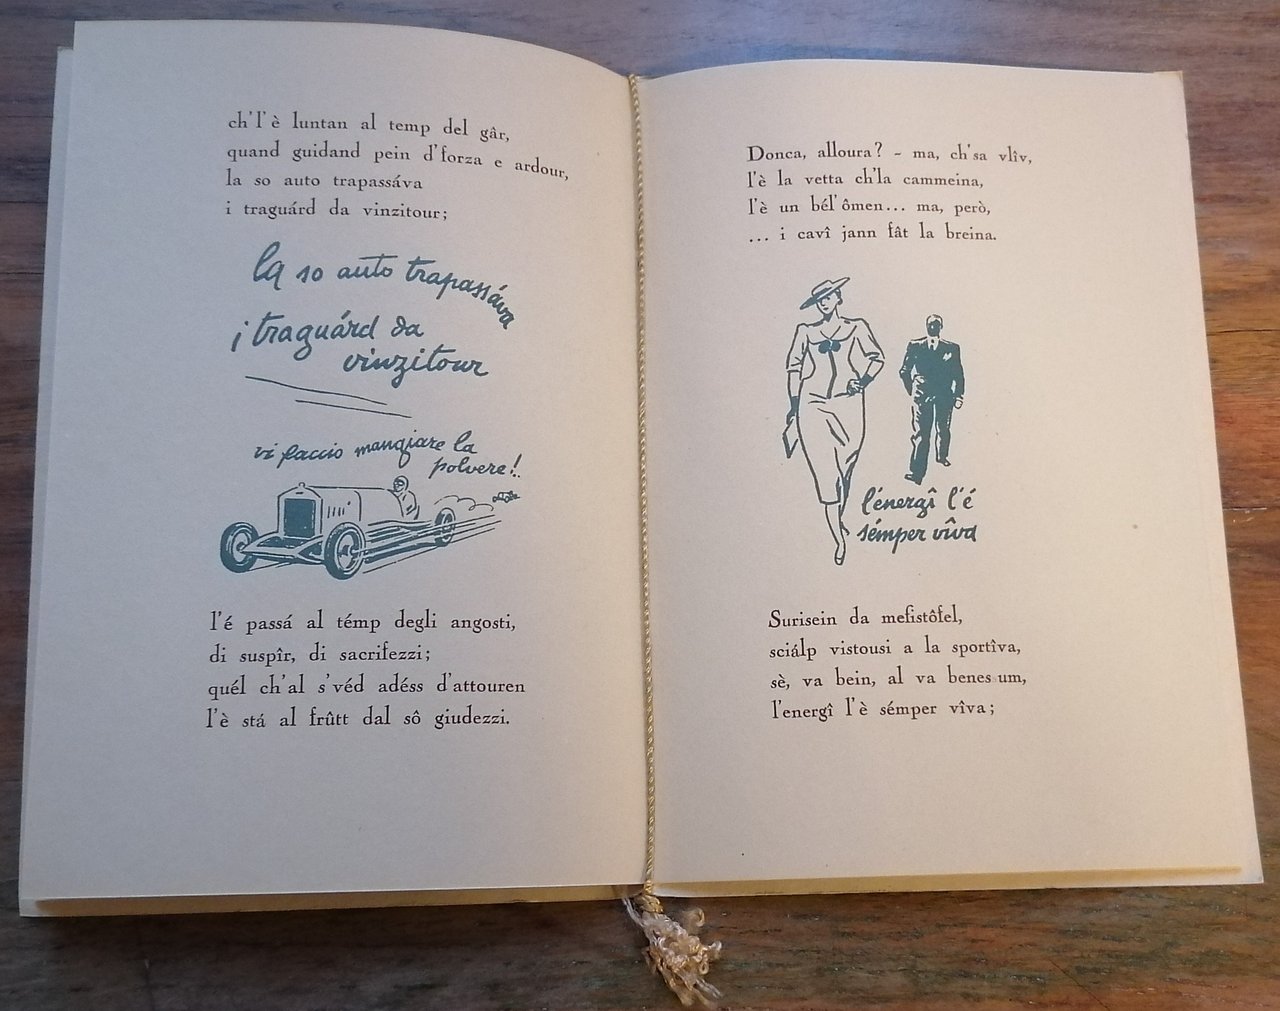 ch'l'è luntan al temp del gâr,
quand guidand pein d'forza e ardour,
la so auto trapassáva
i traguárd da vinzitour;
la so auto trapassáva
i traguárd da
vinzitour
vi faccio mangiare la
polvere!
l'é passá al témp degli angosti,
di suspîr, di sacrifezzi;
quél ch'al s'véd adéss d'attouren
l'è stá al frûtt dal sô giudezzi.
Donca, alloura? - ma, ch'sa vlîv,
l'è la vetta ch'la cammeina,
l'è un bél'ômen... ma, però,
... i cavî jann fât la breina.
l'énergî l'é
sémper vîva
Surisein da mefistôfel,
sciálp vistousi a la sportîva,
sè, va bein, al va benes um,
l'energî l'è sémper vîva;